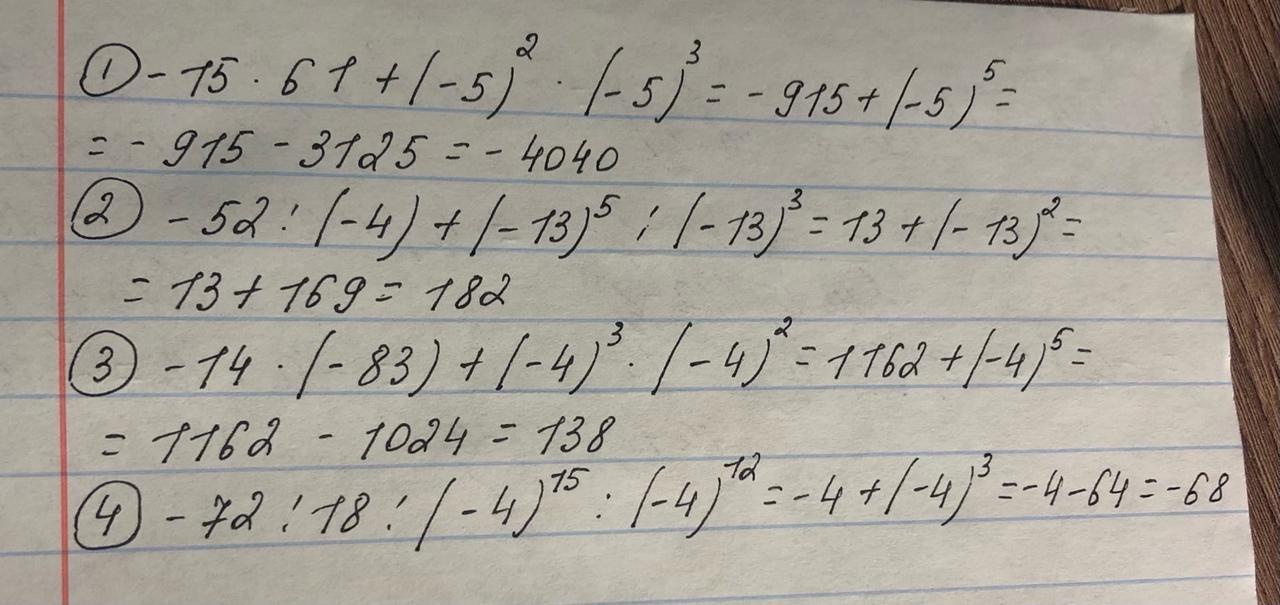 ① - 15 · 61 + (-5)² · (-5)³ = - 915 + (-5)⁵ =
= - 915 - 3125 = - 4040
② - 52 : (-4) + (-13)⁵ : (-13)³ = 13 + (-13)² =
= 13 + 169 = 182
③ - 14 · (-83) + (-4)³ · (-4)² = 1162 + (-4)⁵ =
= 1162 - 1024 = 138
④ - 72 : 18 : (-4)¹⁵ : (-4)¹² = -4 + (-4)³ = -4-64 = -68